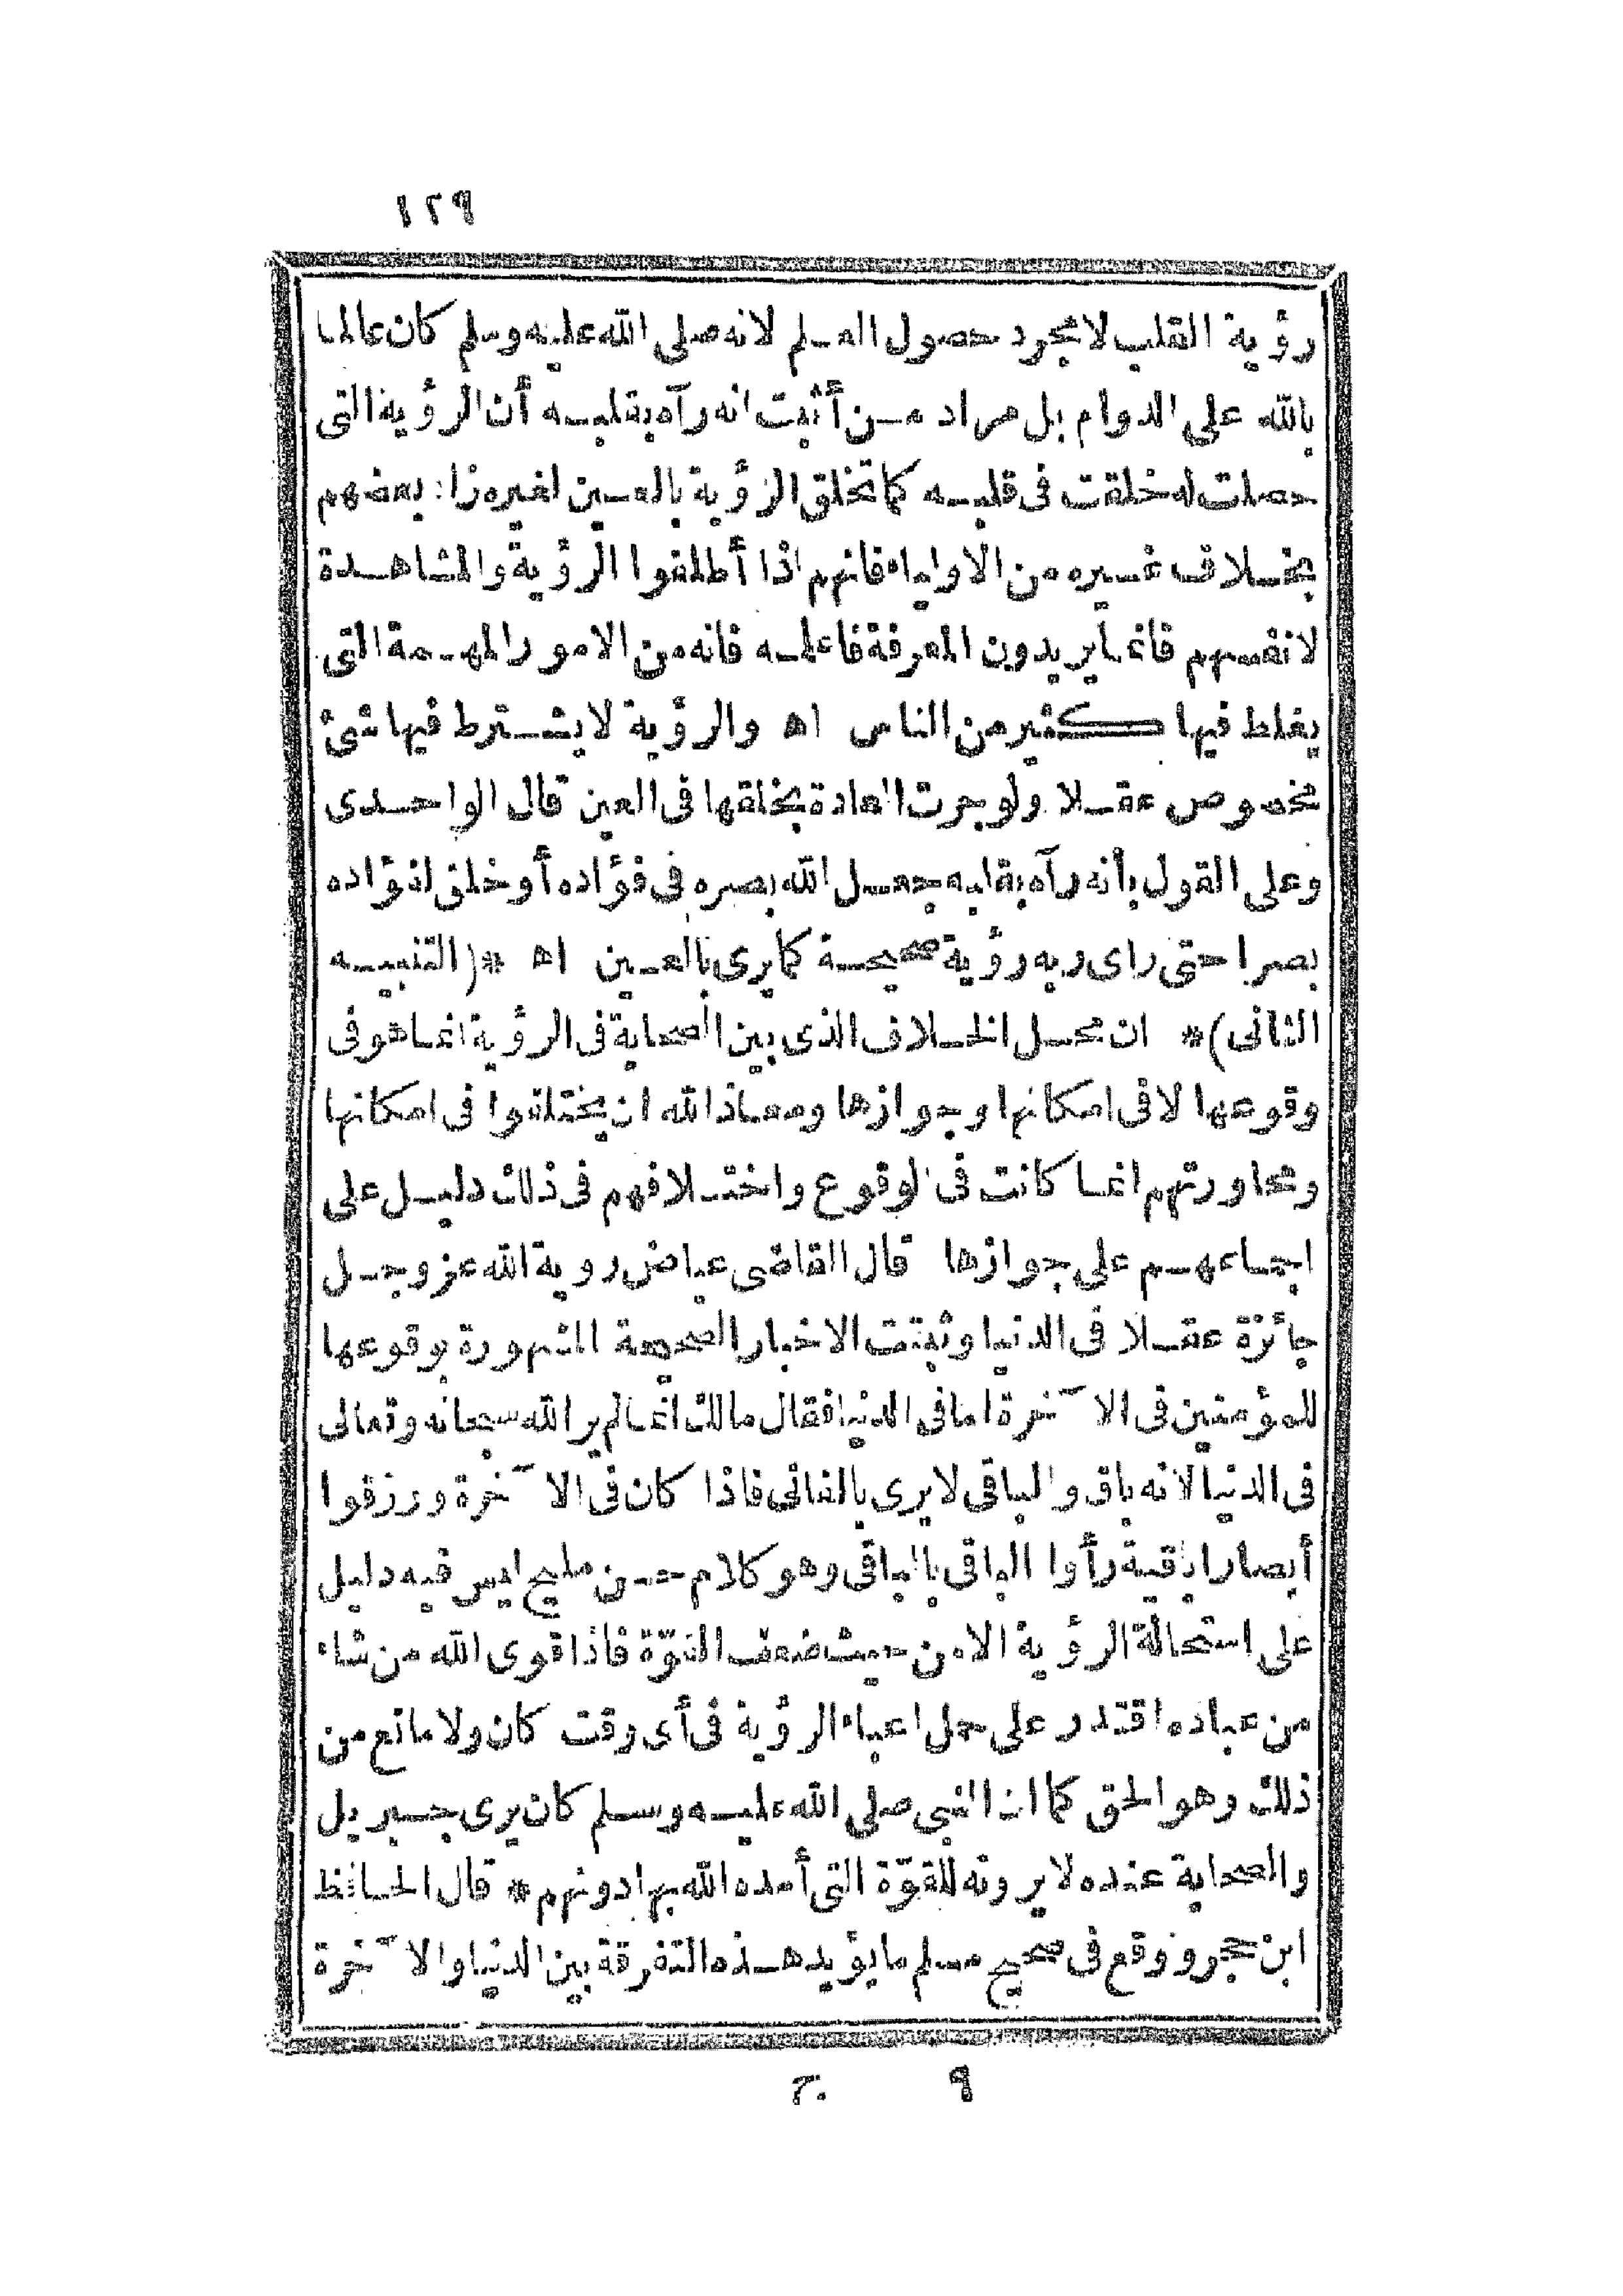 ١٢٩
رؤية القلب لا مجرد حصول العلم لانه صلى الله عليه وسلم كان عالما
بالله على الدوام بل مراد من أثبت انه رآه بقلبه أن الرؤية التى
حصلت له خلقت فى قلبه كما تخلق الرؤية بالعين لغيره زاد بعضهم
بخلاف غيره من الاولياء فانهم اذا أطلقوا الرؤية والمشاهدة
لانفسهم فانما يريدون المعرفة فاعلمه فانه من الامور المهمة التى
يغلط فيها كثير من الناس اه والرؤية لا يشترط فيها شئ
مخصوص عقلا ولو جرت العادة بخلقها فى العين قال الواحدى
وعلى القول بأنه رآه بقلبه جعل الله بصره فى فؤاده أو خلق لفؤاده
بصرا حتى راى ربه رؤية صحيحة كما يرى بالعين اه *(التنبيه
الثانى)* ان محل الخلاف الذى بين الصحابة فى الرؤية انما هو فى
وقوعها لا فى امكانها وجوازها ومعاذ الله ان يختلفوا فى امكانها
ومحاورتهم انما كانت فى الوقوع واختلافهم فى ذلك دليل على
اجماعهم على جوازها قال القاضى عياض روية الله عز وجل
جائزة عقلا فى الدنيا وثبتت الاخبار الصحيحة المشهورة بوقوعها
للمؤمنين فى الآخرة اما فى الدنيا فقال مالك انما لم ير الله سبحانه وتعالى
فى الدنيا لانه باق والباقى لا يرى بالفانى فاذا كان فى الآخرة ورزقوا
أبصارا باقية رأوا الباقى بالباقى وهو كلام حسن مليح ليس فيه دليل
على استحالة الرؤية الا من حيث ضعف القوّة فاذا قوى الله من شاء
من عباده اقتدر على حمل اعباء الرؤية فى أى وقت كان ولا مانع من
ذلك وهو الحق كما ان النبى صلى الله عليه وسلم كان يرى جبريل
والصحابة عنده لا يرونه للقوّة التى أمده الله بها دونهم * قال الحافظ
ابن حجر ووقع فى صحيح مسلم ما يؤيد هذه التفرقة بين الدنيا والآخرة
٩